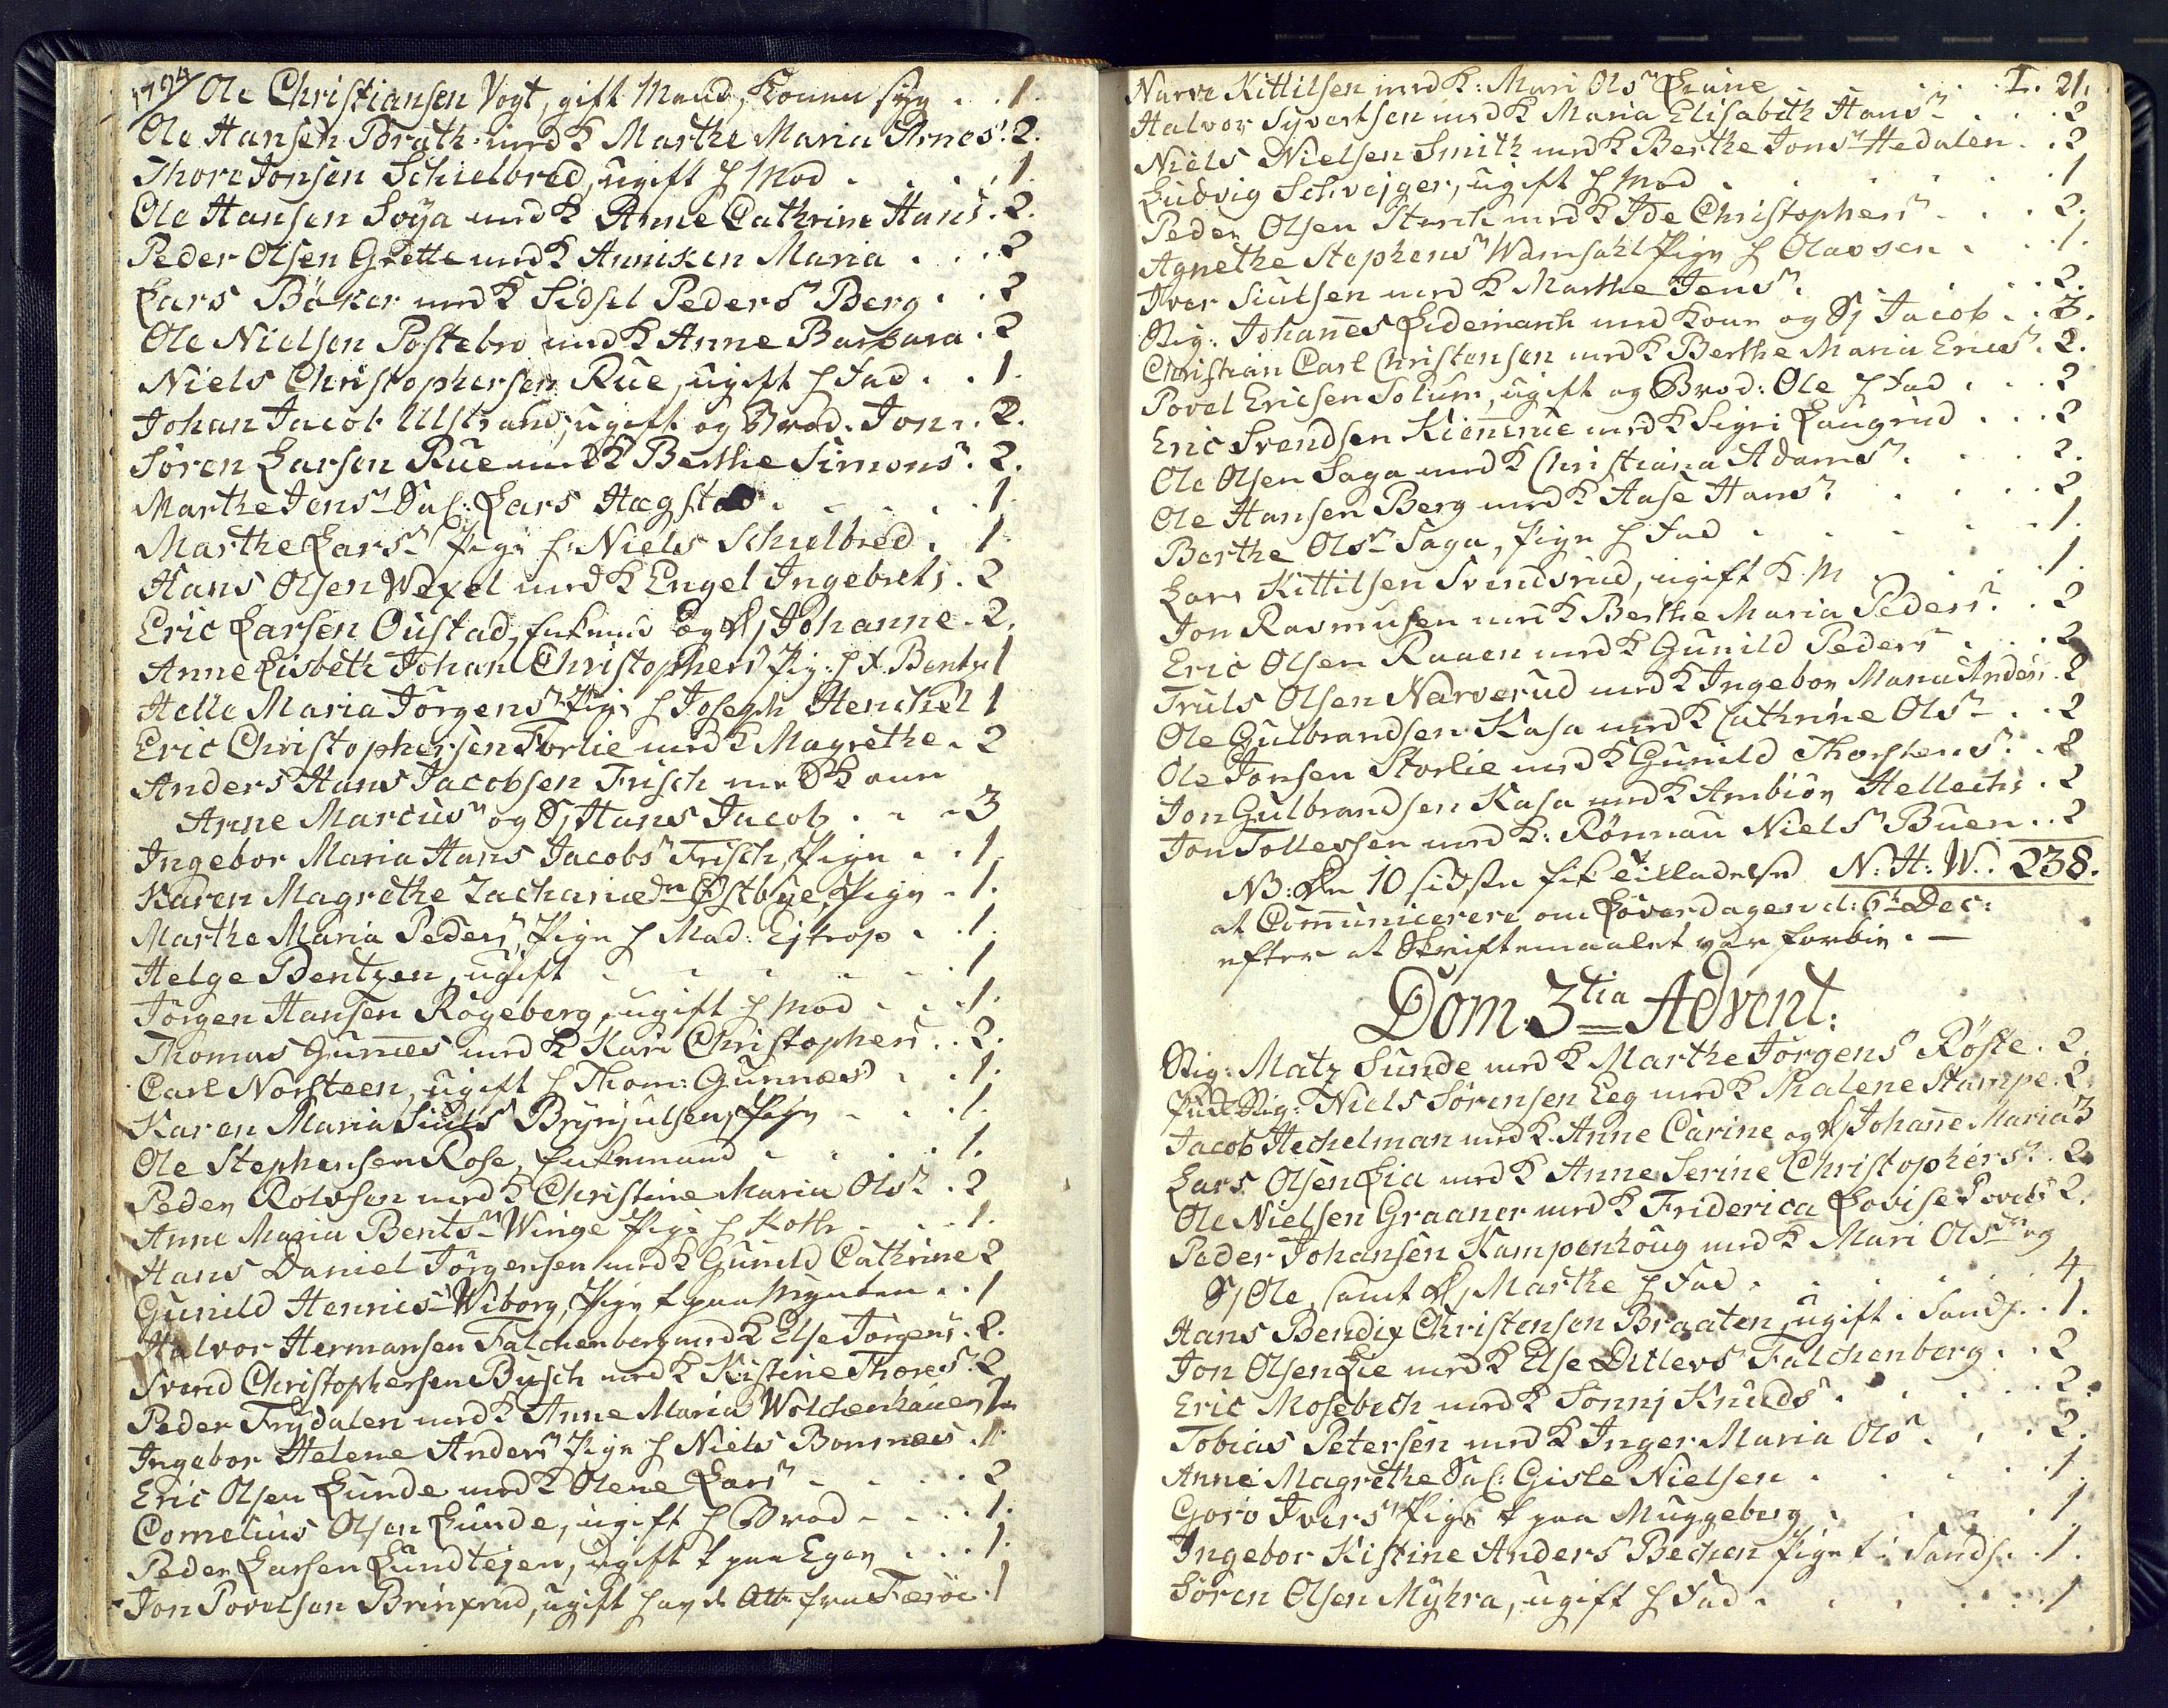 1794
Ole Christiansen Vogt, gift Mand, Konen syg . . 1.
Ole Hansen Brath med K Marthe Maria Arnes: 2.
Thore Jonsen Schielbred, ugift h Mod . . . 1.
Ole Hansen Soya med K Anne Cathrine Hans: 2.
Peder Olsen Grette med K Anniken Maria . . . 2
Lars Böker med K Sidsel Peders Berg . . 2
Ole Nielsen Postebro med K Anne Barbara . 2
Niels Christophersen Rue, ugift h Fad . . 1.
Johan Jacob Ulstrand, ugift og Brod. Jon . . 2.
Sören Larsen Rue med K Berthe Simons: 2.
Marthe Jens Sal: Lars Hægstad . . . . 1.
Marthe Lars Pige h: Niels Schielbred . 1.
Hans Olsen Wexel med K Engel Ingebrets . 2
Eric Larsen Oustad, Enkemd og D, Johanne . 2.
Anne Lisbeth Johan Christophers Pig: h F. Bentz 1
Helle Maria Jörgens Pige h Joseph Henchel 1
Eric Christophersen Torlie med K Magrethe . 2
Anders Hans Jacobsen Frisch med Konen
Anne Marcus og S, Hans Jacob . . . 3
Ingebor Maria Hans Jacobs Frisch, Pige . . 1.
Karen Magrethe Zachariæ Østbye, Pige . 1.
Marthe Maria Peders, Pige h Mad: Ejtrop . . 1.
Helge Bentzen, ugift . . . . . 1
Jörgen Hansen Rögeberg, ugift h Mod . . . 1.
Thomas Gunnes med K Kari Christophers . . 2.
Carl Norsteen, ugift h Thom: Gunnæs . . 1.
Karen Maria Siuls Brynjulsen, Pige . . . 1.
Ole Stephensen Rose, Enkemand . . . . 1.
Peder Rolvsen med K Christine Maria Ols: . 2
Anne Maria Bents Winge Pige h Koth . . . 1.
Hans Daniel Jörgensen med K Gunild Cathrine 2
Gunild Hennies Wiborg, Pige t paa Mynten . . 1
Halvor Hermansen Falchenberg med K Else Jörgens . 2.
Svend Christophersen Busch med K Kistine Thores . 2
Peder Frydalen med K Anne Maria Wolchenhauer
Ingebor Helene Anders Pige h Niels Bonnæs . 1
Eric Olsen Lunde med K Olene Lars . . . . 2
Cornelius Olsen Lunde, ugift h Brod . . . 1.
Peder Larsen Lundtejen, ugift t paa Egen . . . 1.
Jon Povelsen Brinxrud, ugift Att fra Færöe . 1
Narve Kittilsen med K: Mari Ols Liane . . . L. 21.
Halvor Syvertsen med K Maria Elisabeth Hans . . . 2
Niels Nielsen Smith med K Berthe Jons Hedalen . . 2
Ludvig Schvejger, ugift h Mod . . . . . 1
Peder Olsen Sterch med K Ide Christophers . . . 2.
Agnethe Stephens Wamsahl Pige h Olavsen . . . 1.
Iver Siulsen med K Marthe Jens . . . . . 2.
Stig: Johannes Lidemarch med Kone og S, Jacob . . 3.
Christian Carl Christensen med K Berthe Maria Erics . 2.
Povel Ericsen Solum, ugift og Brod: Ole h Fad . . . 2
Eric Svendsen Kiennrue med K Sigri Laugrud . . . 2
Ole Olsen Saga med K Christiana Adams . . . 2.
Ole Hansen Berg med K Aase Hans . . . . 2
Berthe Ols Saga, Pige h Fad . . . . . 1.
Lars Kittilsen Svendsrud, ugift K. M . . . . 1.
Jon Rasmusen med K Berthe Maria Peders . . 2
Eric Olsen Raaen med K Gunild Peders . . . 2
Truls Olsen Narverud med K Ingebor Maria Anders . 2
Ole Gulbrandsen Kasa med K Cathrine Ols . . 2
Ole Jonsen Storlie med K Gunild Thorstens . . 2
Jon Gulbrandsen Kasa med K Ambiör Hellechs . 2
Jon Tollefsen med K: Rönnau Niels Buen . . 2
NB: De 10 sidste fik tilladelse N: H: W. . 238.
at Communicerere om Löverdagen d: 6te Dec:
efter at Skriftemaalet var forbie. —
Dom. 3tia Advent:
Stig: Matz Sunde med K Marthe Jörgens Röste . 2.
Stig: Niels Sörensen Eeg med K Malene Stampe . 2
Jacob Hechelman med K. Anne Carine og D, Johanne Maria 3
Lars Olsen Lia med K Anne Serine Christophers . 2.
Ole Nielsen Graaner med K Friderica Lovise Povels 2.
Peder Johansen Kampenhoug med K Mari Ols og
S, Ole, samt D, Marthe h Fad . . . . . 4
Hans Bendix Christensen Braaten, ugift i Sands . . 1.
Jon Olsen Lie med K Else Ditlevs Falchenberg . . 2
Eric Mosebech med K Sonnj Knuds . . . . . 2.
Tobias Petersen med K Inger Maria Ols . . . 2.
Anne Magrethe Sal: Gisle Nielsen . . . . . 1.
Goro Ivers Pige t paa Muggeberg . . . . 1.
Ingebor Kistine Anders Bechen Pige t i Sands . . 1.
Sören Olsen Myhra, ugift h Fad . . . . . 1